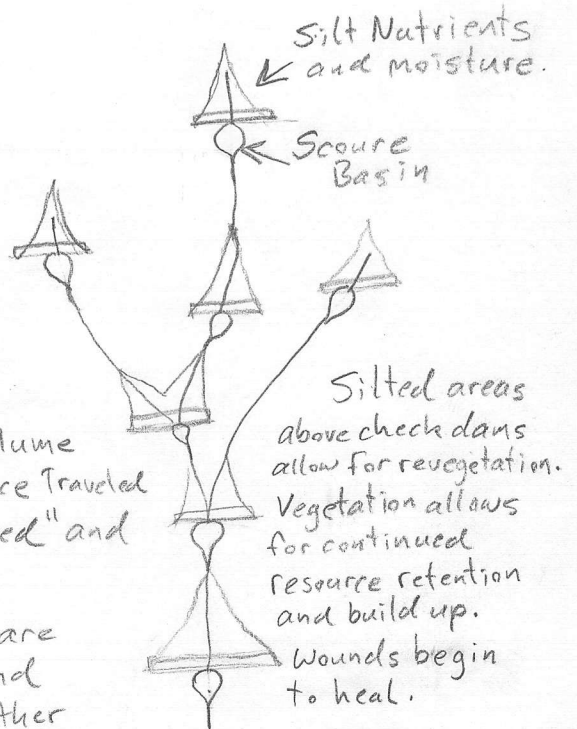 Silt Nutrients
and moisture.
Scoure
Basin
Silted areas
above check dams
allow for revegetation.
Vegetation allows
for continued
resource retention
and build up.
Wounds begin
to heal.
lume
ce Traveled
ed" and
are
nd
ther